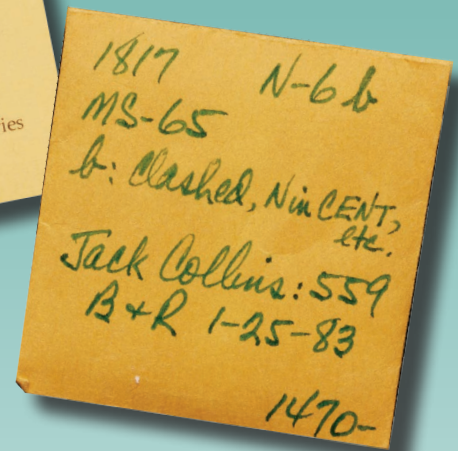 ies
1817 N-6 b
MS-65
b: Clashed, N in CENT,
etc.
Jack Collins: 559
B+R 1-25-83
1470-